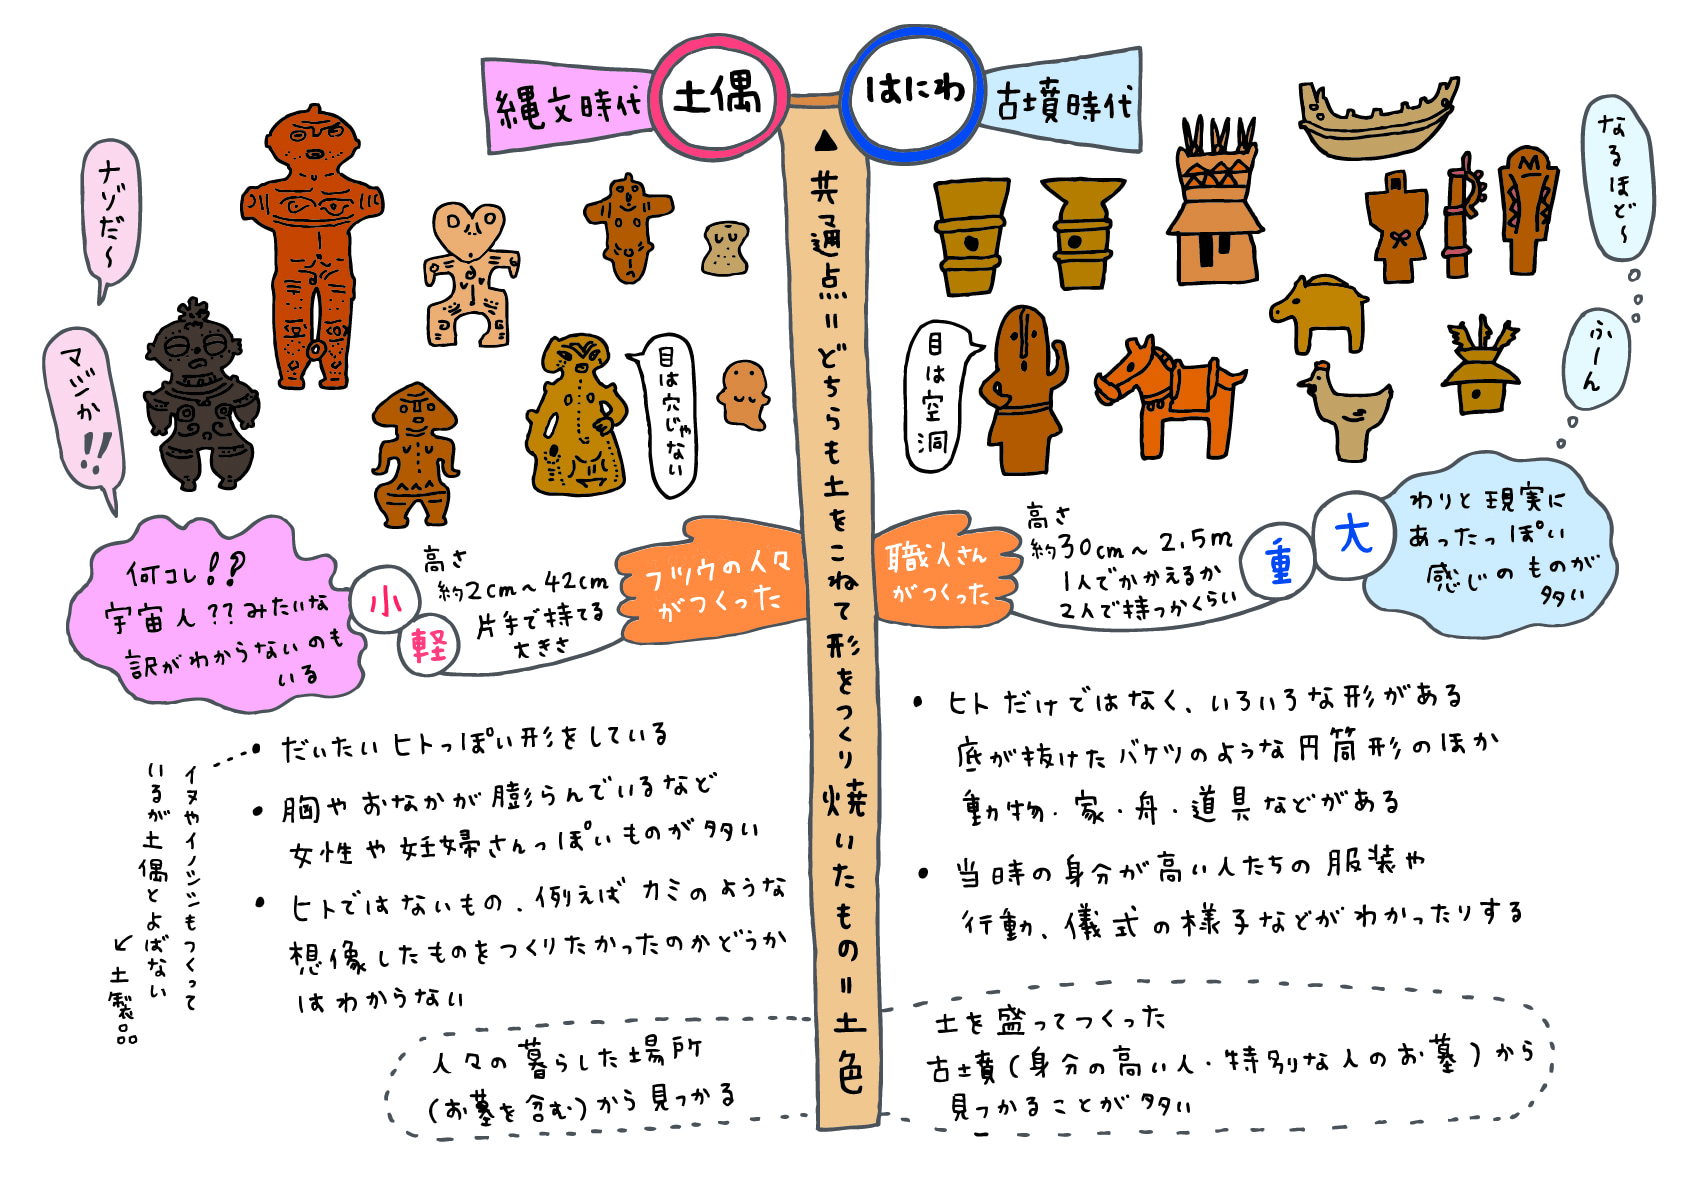 縄文時代
土偶
はにわ
古墳時代
ナゾだ〜
マジか!!
目は穴じゃない
目は空洞
なるほど〜
ふーん
▲共通点=どちらも土をこねて形をつくり焼いたもの=土色
何コレ!?
宇宙人??みたいな
訳がわからないのも
いる
小
軽
高さ
約2cm〜42cm
片手で持てる
大きさ
フツウの人々
がつくった
職人さん
がつくった
高さ
約30cm〜2.5m
1人でかかえるか
2人で持つかくらい
重
大
わりと現実に
あったっぽい
感じのものが
多い
・だいたいヒトっぽい形をしている
イヌやイノシシもつくって
いるが土偶とよばない
↙土製品
・胸やおなかが膨らんでいるなど
女性や妊婦さんっぽいものが多い
・ヒトではないもの、例えばカミのような
想像したものをつくりたかったのかどうか
はわからない
人々の暮らした場所
(お墓を含む)から見つかる
・ヒトだけではなく、いろいろな形がある
底が抜けたバケツのような円筒形のほか
動物・家・舟・道具などがある
・当時の身分が高い人たちの服装や
行動、儀式の様子などがわかったりする
土を盛ってつくった
古墳(身分の高い人・特別な人のお墓)から
見つかることが多い